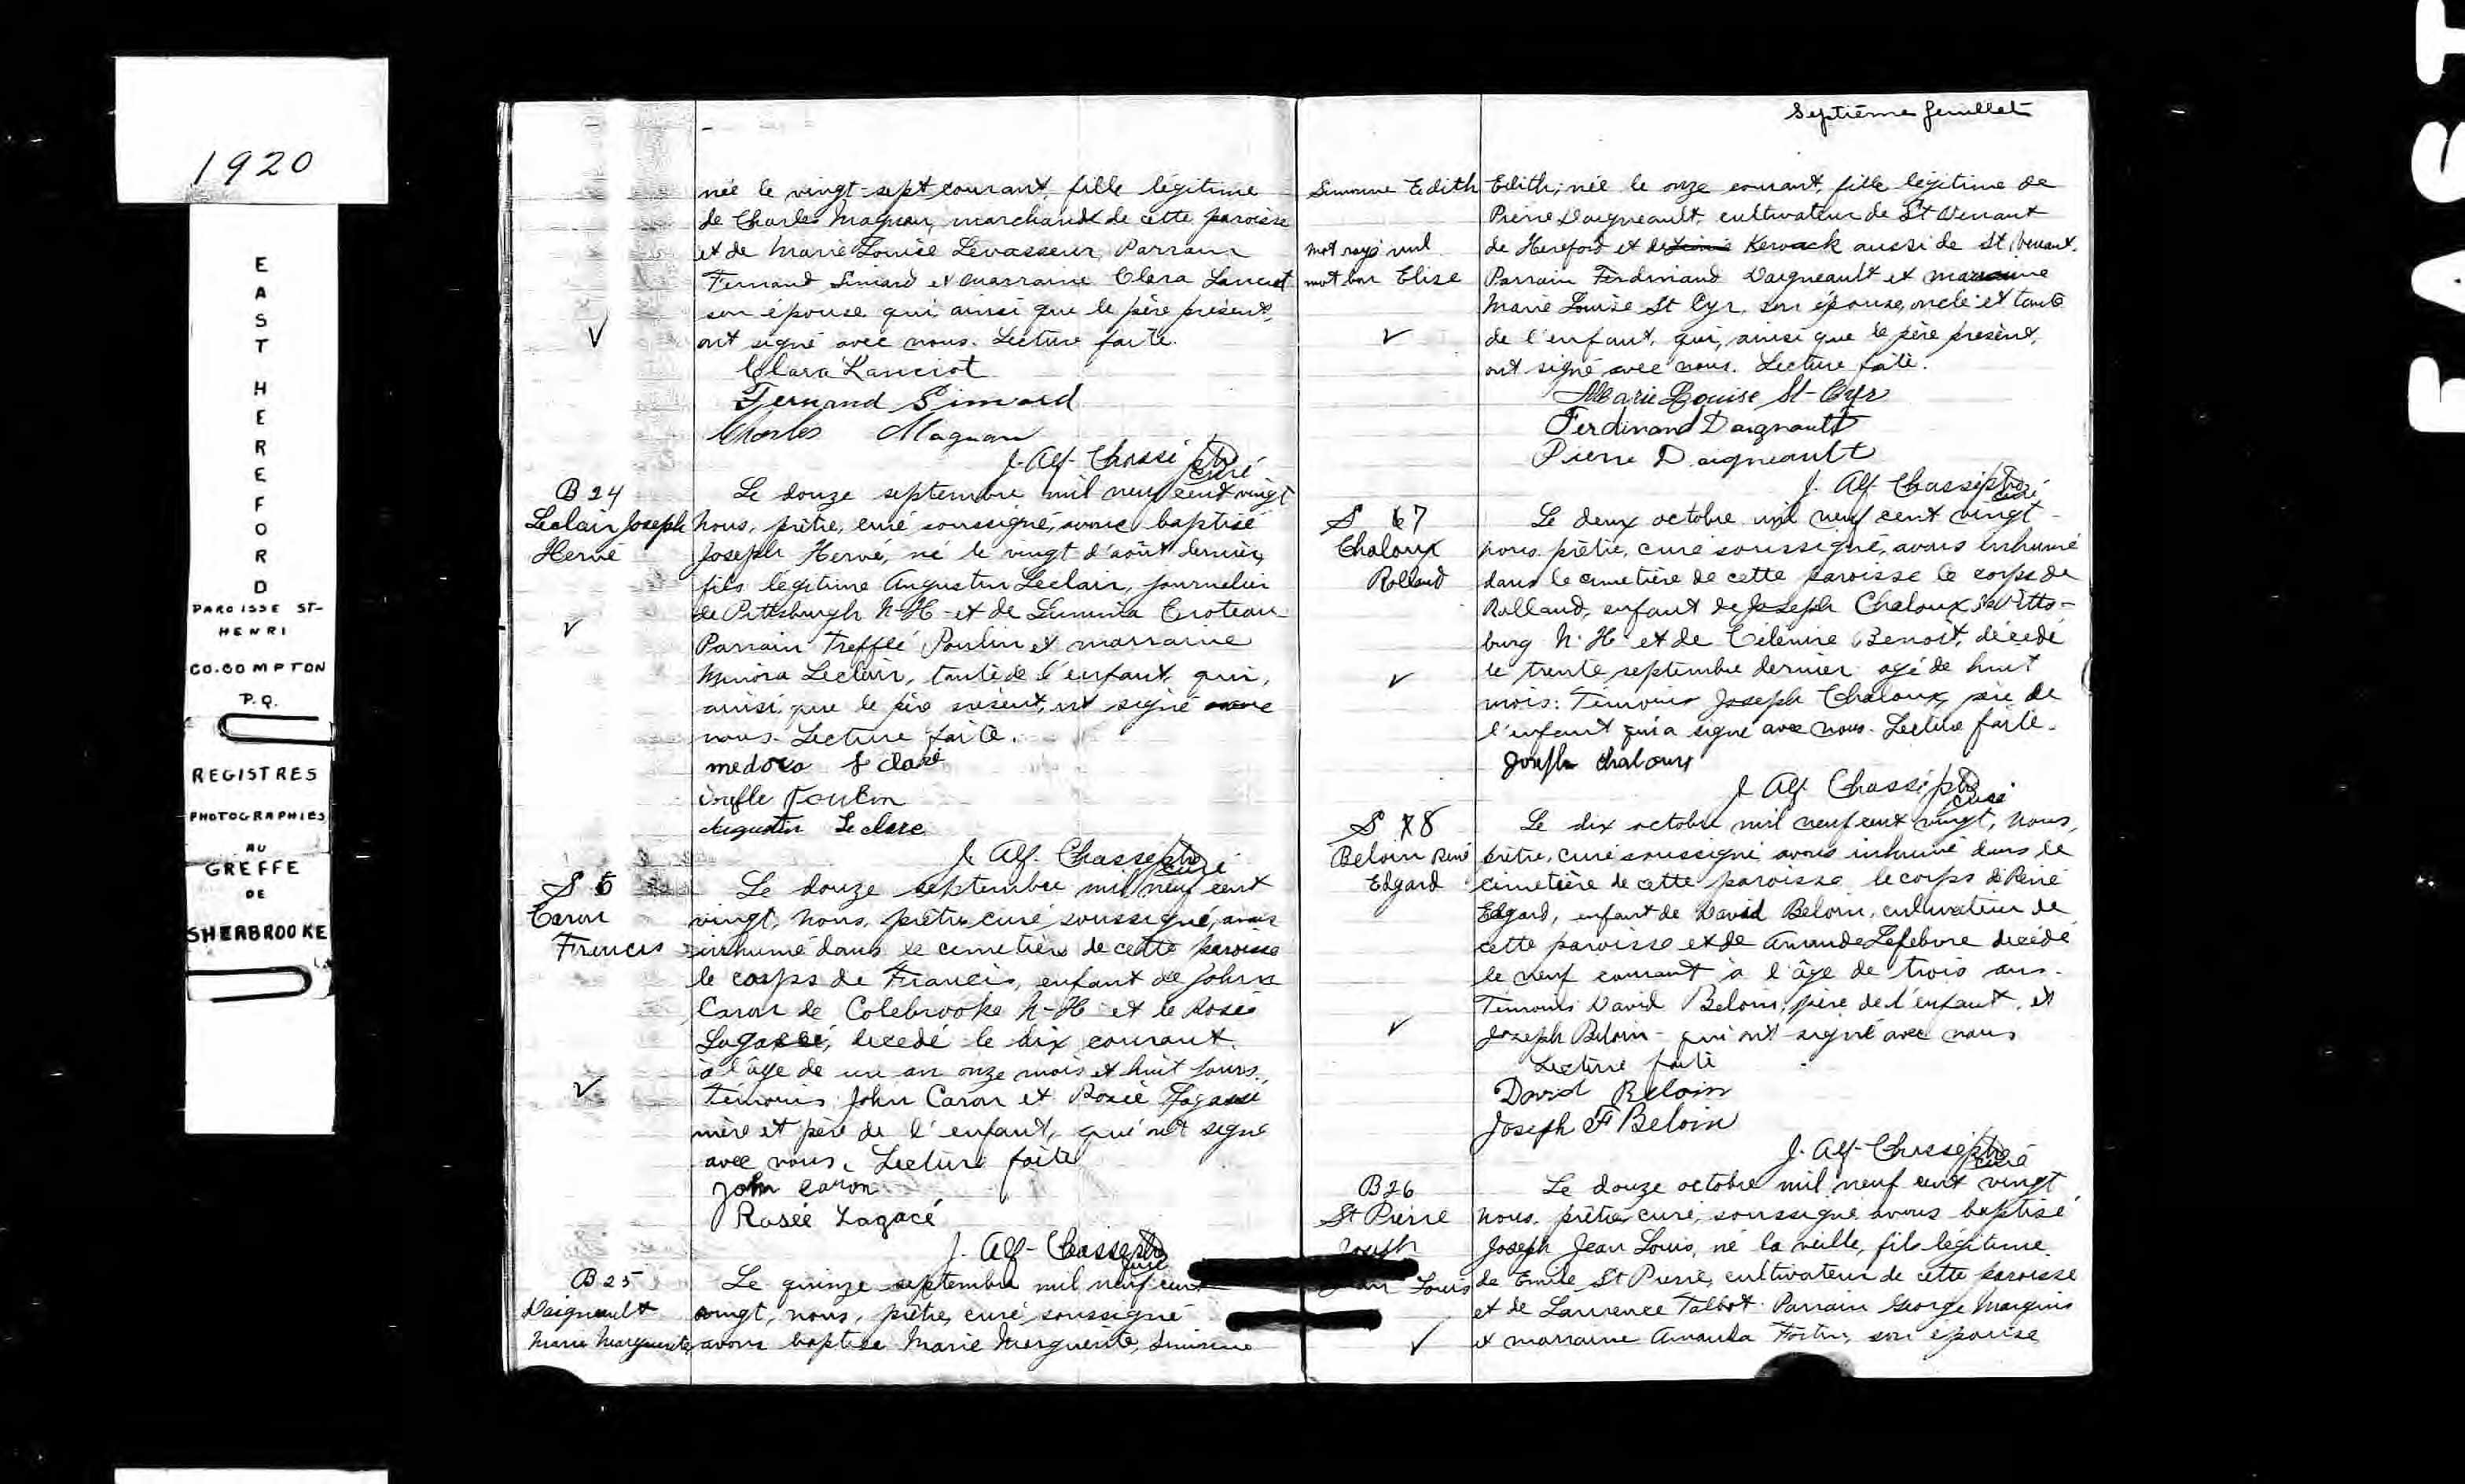 1920
EAST HEREFORD
PAROISSE ST-
HENRI
CO. COMPTON
P.Q.
REGISTRES
PHOTOGRAPHIES
AU
GREFFE
DE
SHERBROOKE
née le vingt-sept courant, fille légitime
de Charles Magnan, marchand de cette paroisse
et de Marie Louise Levasseur, Parrain
Fernand Simard et marraine Clara Lanciot
son épouse qui ainsi que le père présent,
ont signé avec nous. Lecture faite.
Clara Lanciot
Fernand Simard
Charles Magnan
J. Alf. Chassé ptre
curé
B 24
Leclair Joseph
Hervé
Le douze septembre mil neuf cent vingt
Nous, prêtre, curé soussigné, avons baptisé
Joseph Hervé, né le vingt d'août dernier,
fils légitime Augustin Leclair, journalier
de Pittsburgh N-H- et de Croteau
Parrain Trefflé Poulin et marraine
Leclair, tante de l'enfant, qui,
ainsi que le père présent, ont signé avec
nous. Lecture faite.
medora
Poulin
Augustin Leclare
J. Alf. Chassé ptre
curé
S 6
Caron
Francis
Le douze septembre mil neuf cent
vingt, nous, prêtre curé soussigné, avons
inhumé dans le cimetière de cette paroisse
le corps de Francis, enfant de John
Caron de Colebrooke N-H et de Rosée
Lagassé, decedé le dix courant
à l'âge de un an onze mois et huit jours.
Témoins John Caron et Rosée Lagassé
mère et père de l'enfant, qui ont signé
avec nous. Lecture faite
John Caron
Rosée Lagacé
J. Alf- Chassé ptre
curé
B 25
Daigneault
Marie Marguerite
Le quinze septembre mil neuf cent
vingt, nous, prêtre, curé soussigné
avons baptisé Marie Marguerite, Simonne
Septième feuillet
Simonne Edith
mot rayé nul
mot bon Elise
Edith, née le onze courant, fille légitime de
Pierre Daigneault, cultivateur de St Venant
de Hereford et de Kerouack aussi de St Venant.
Parrain Ferdinand Daigneault et marraine
Marie Louise St Cyr, son épouse, oncle et tante
de l'enfant, qui, ainsi que le père présent,
ont signé avec nous. Lecture faite.
Marie Louise St-Cyr
Ferdinand Daignault
Pierre Daigneault
J. Alf. Chassé ptre
curé
S 7
Chaloux
Rolland
Le deux octobre mil neuf cent vingt-
nous prêtre, curé soussigné, avons inhumé
dans le cimetière de cette paroisse le corps de
Rolland, enfant de Joseph Chaloux de Pitts-
burg N. H. et de Célénire Benoit, décédé
le trente septembre dernier agé de huit
mois. Témoins Joseph Chaloux, père de
l'enfant qui a signé avec nous. Lecture faite.
Joseph Chaloux
J. Alf. Chassé ptre
curé
S 8
Beloin René
Edgard
Le dix octobre mil neuf cent vingt, nous,
prêtre, curé soussigné avons inhumé dans le
cimetière de cette paroisse le corps de René
Edgard, enfant de David Beloin, cultivateur de
cette paroisse et de Amanda Lefebvre decédé
le neuf courant à l'âge de trois ans.
Témoins David Beloin, père de l'enfant, et
Joseph Beloin - qui ont signé avec nous
Lecture faite
David Beloin
Joseph F Beloin
J. Alf- Chassé ptre
curé
B 26
St Pierre
Joseph
Jean Louis
Le douze octobre mil neuf cent vingt
nous, prêtre curé, soussigné avons baptisé
Joseph Jean Louis, né la veille, fils légitime
de Emile St Pierre, cultivateur de cette paroisse
et de Laurence Talbot. Parrain George Marquis
et marraine Amanda Fortin, son épouse
EAST